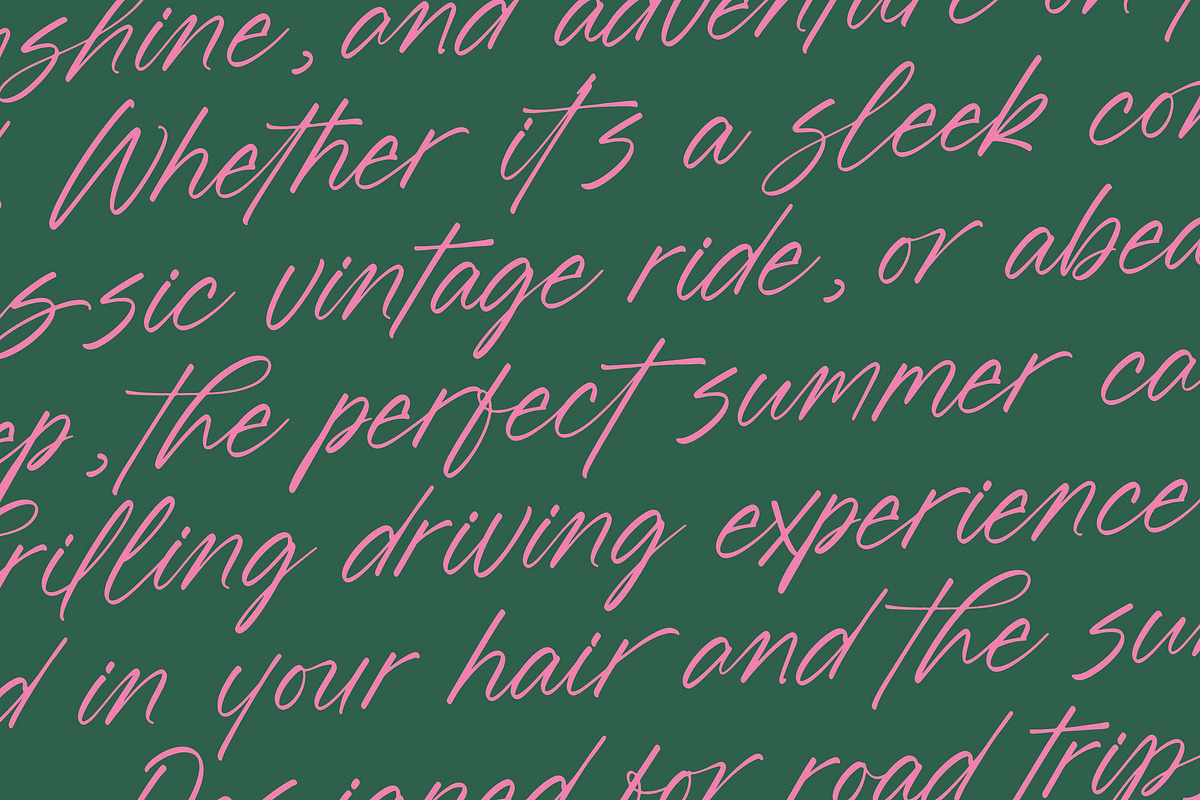 nshine, and adventure on
. Whether it's a sleek con
assic vintage ride, or a bea
ep, the perfect summer ca
hrilling driving experience
d in your hair and the sun
Designed for road trip